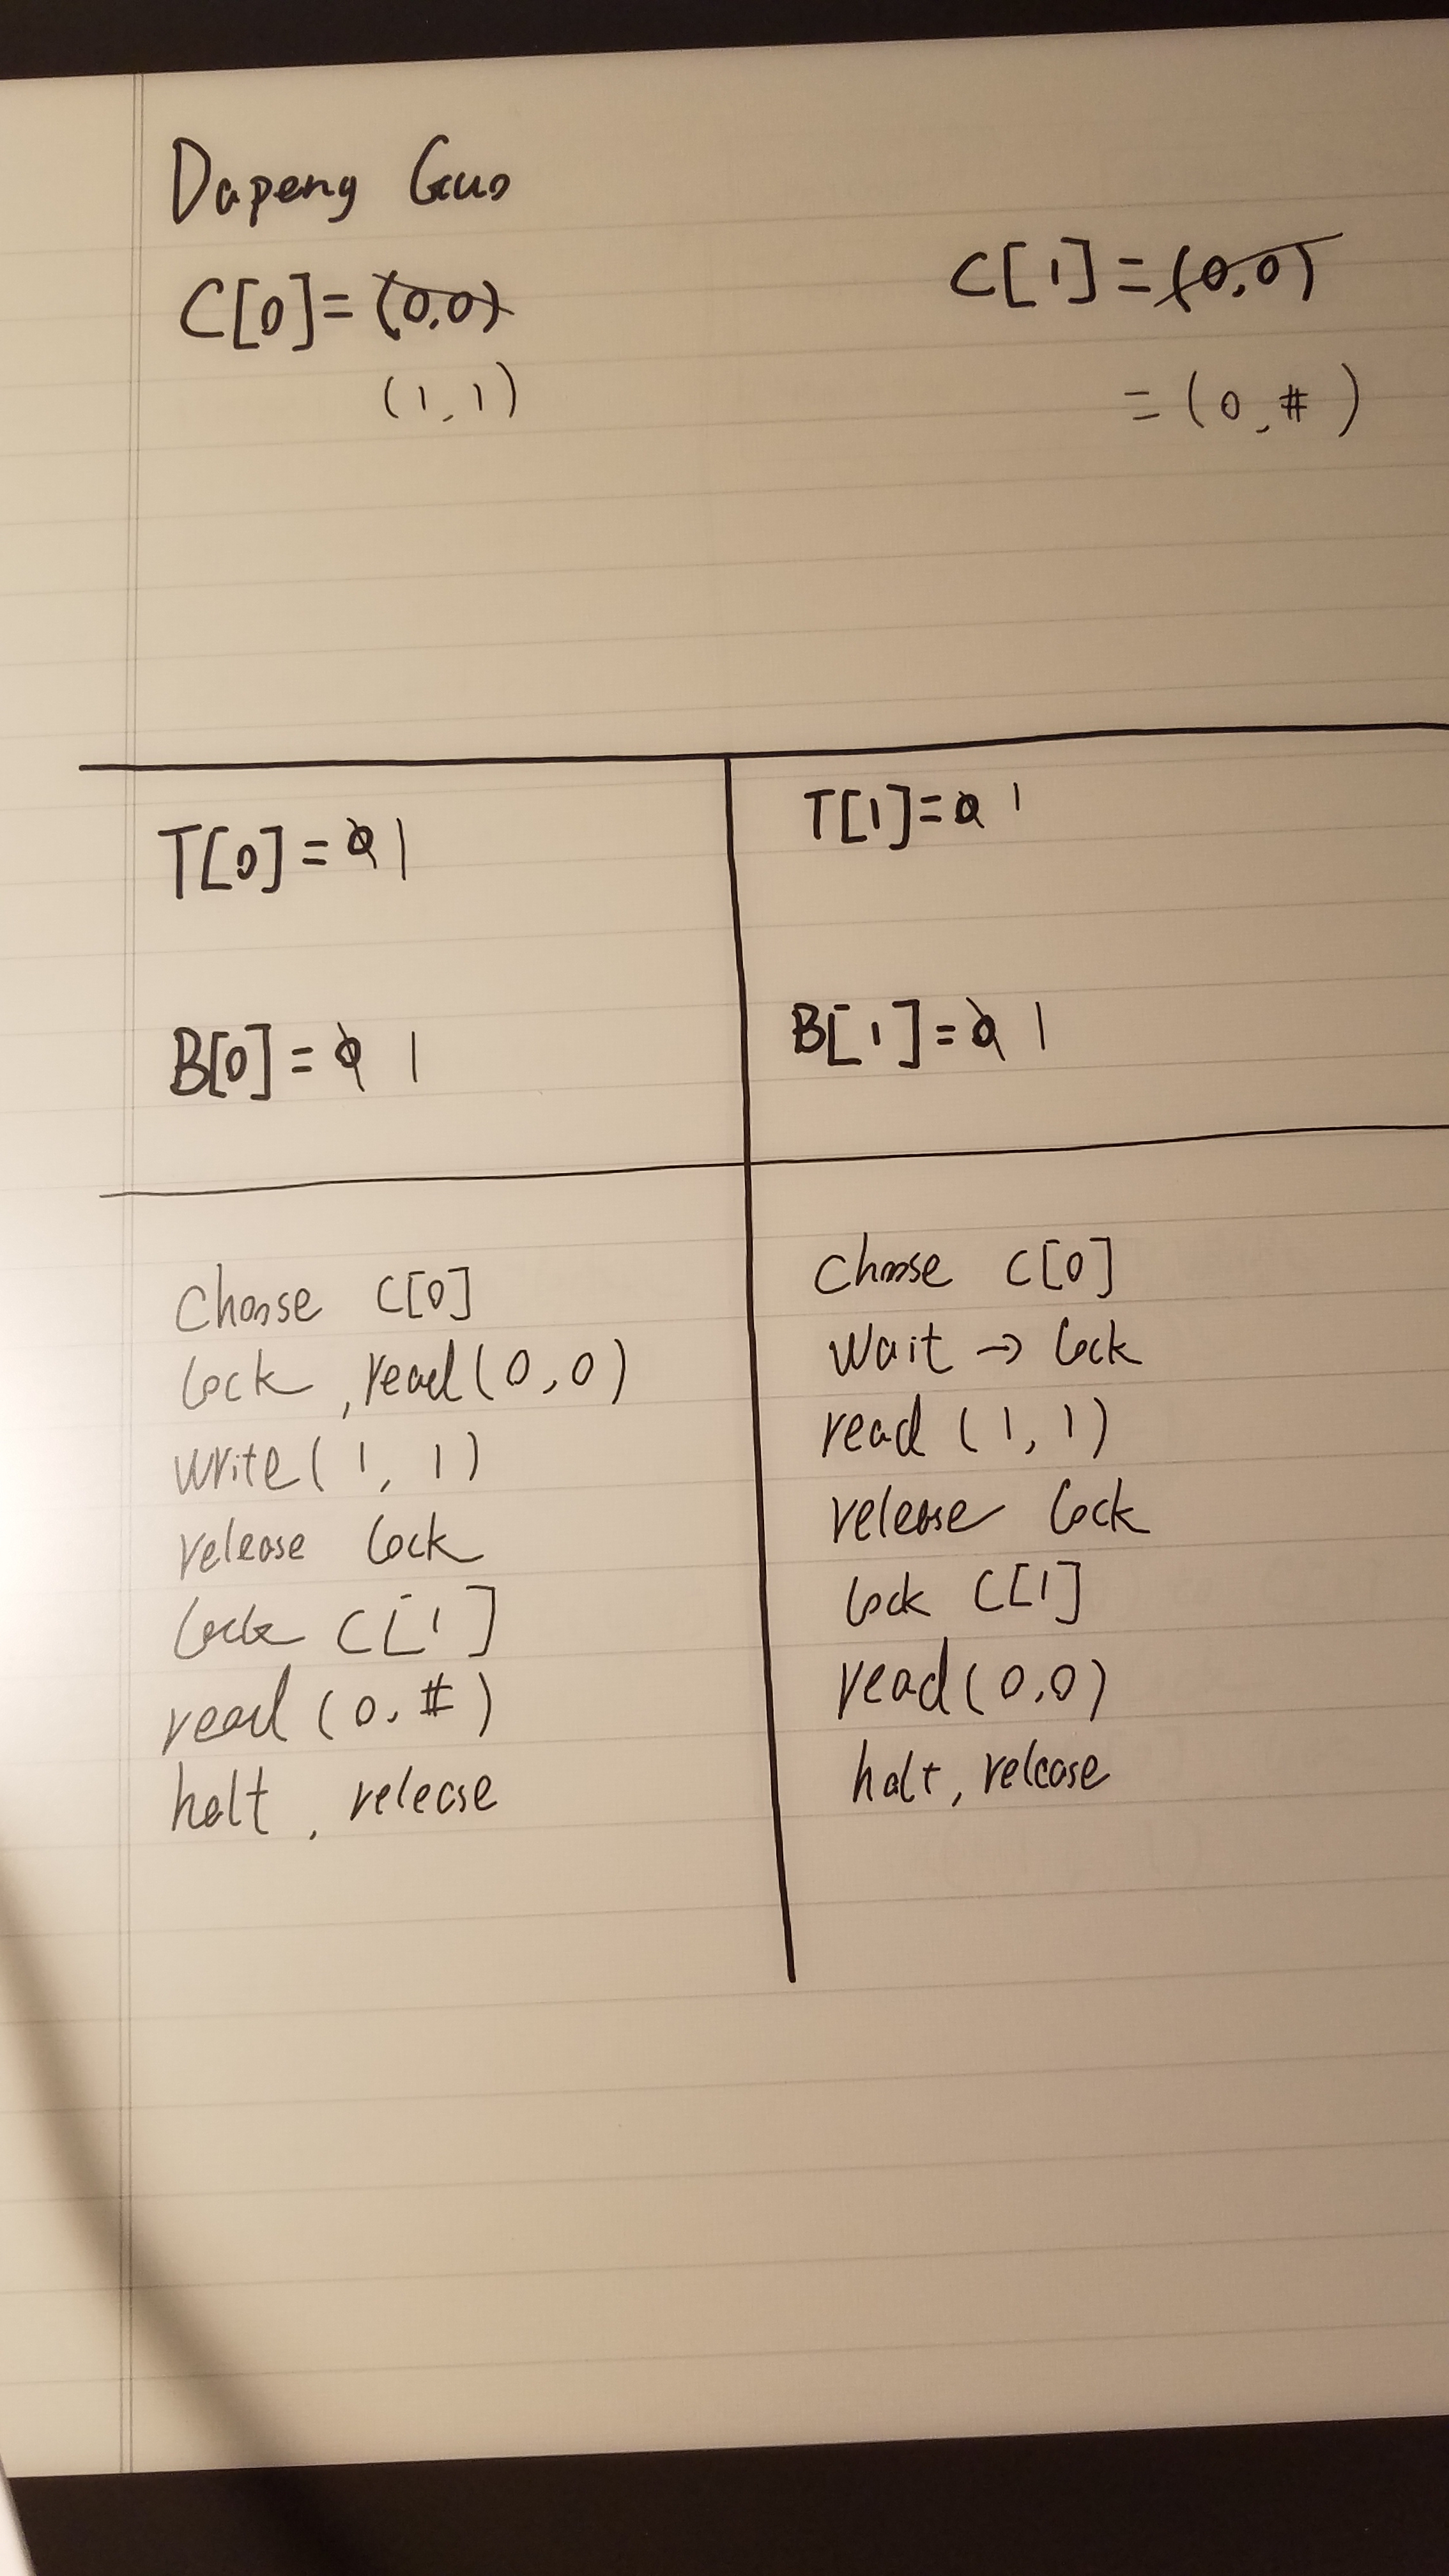 Dapeng Guo
C[0]= (0,0)
(1,1)
C[1]=(0,0)
=(0,#)
T[0]=0 1
B[0]=0 1
T[1]=0 1
B[1]=0 1
Choose C[0]
lock, read(0,0)
write(1,1)
release lock
lock C[1]
read(0,#)
halt, release
Choose C[0]
wait → lock
read (1,1)
release lock
lock C[1]
read(0,0)
halt, release